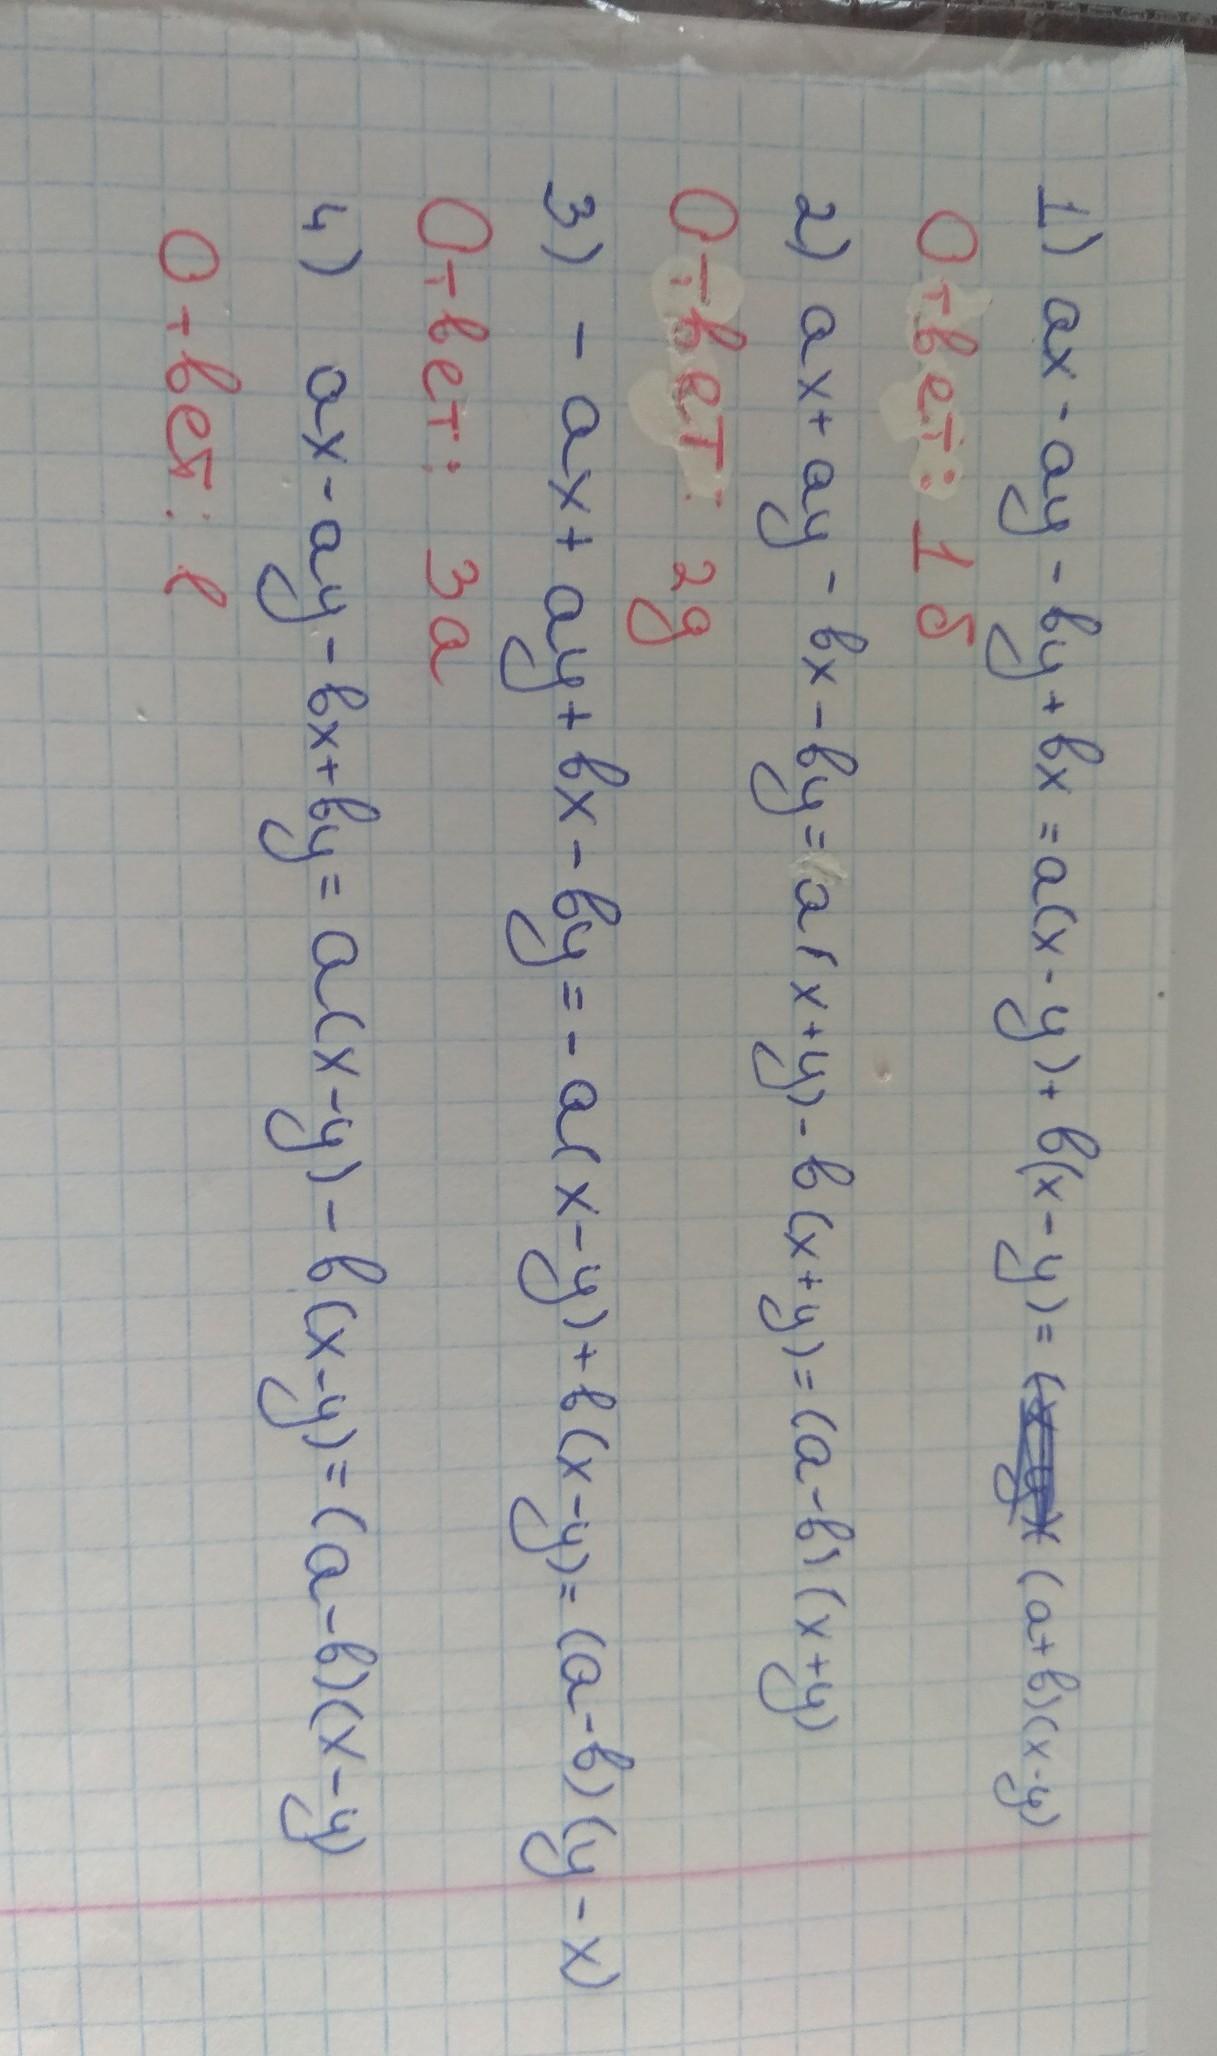 1) ax - ay - by + bx = a(x - y) + b(x - y) = (a + b)(x - y)
Ответ: 1 б
2) ax + ay - bx - by = a(x + y) - b(x + y) = (a - b)(x + y)
Ответ: 2д
3) - ax + ay + bx - by = - a(x - y) + b(x - y) = (a - b)(y - x)
Ответ: 3а
4) ax - ay - bx + by = a(x - y) - b(x - y) = (a - b)(x - y)
Ответ: е